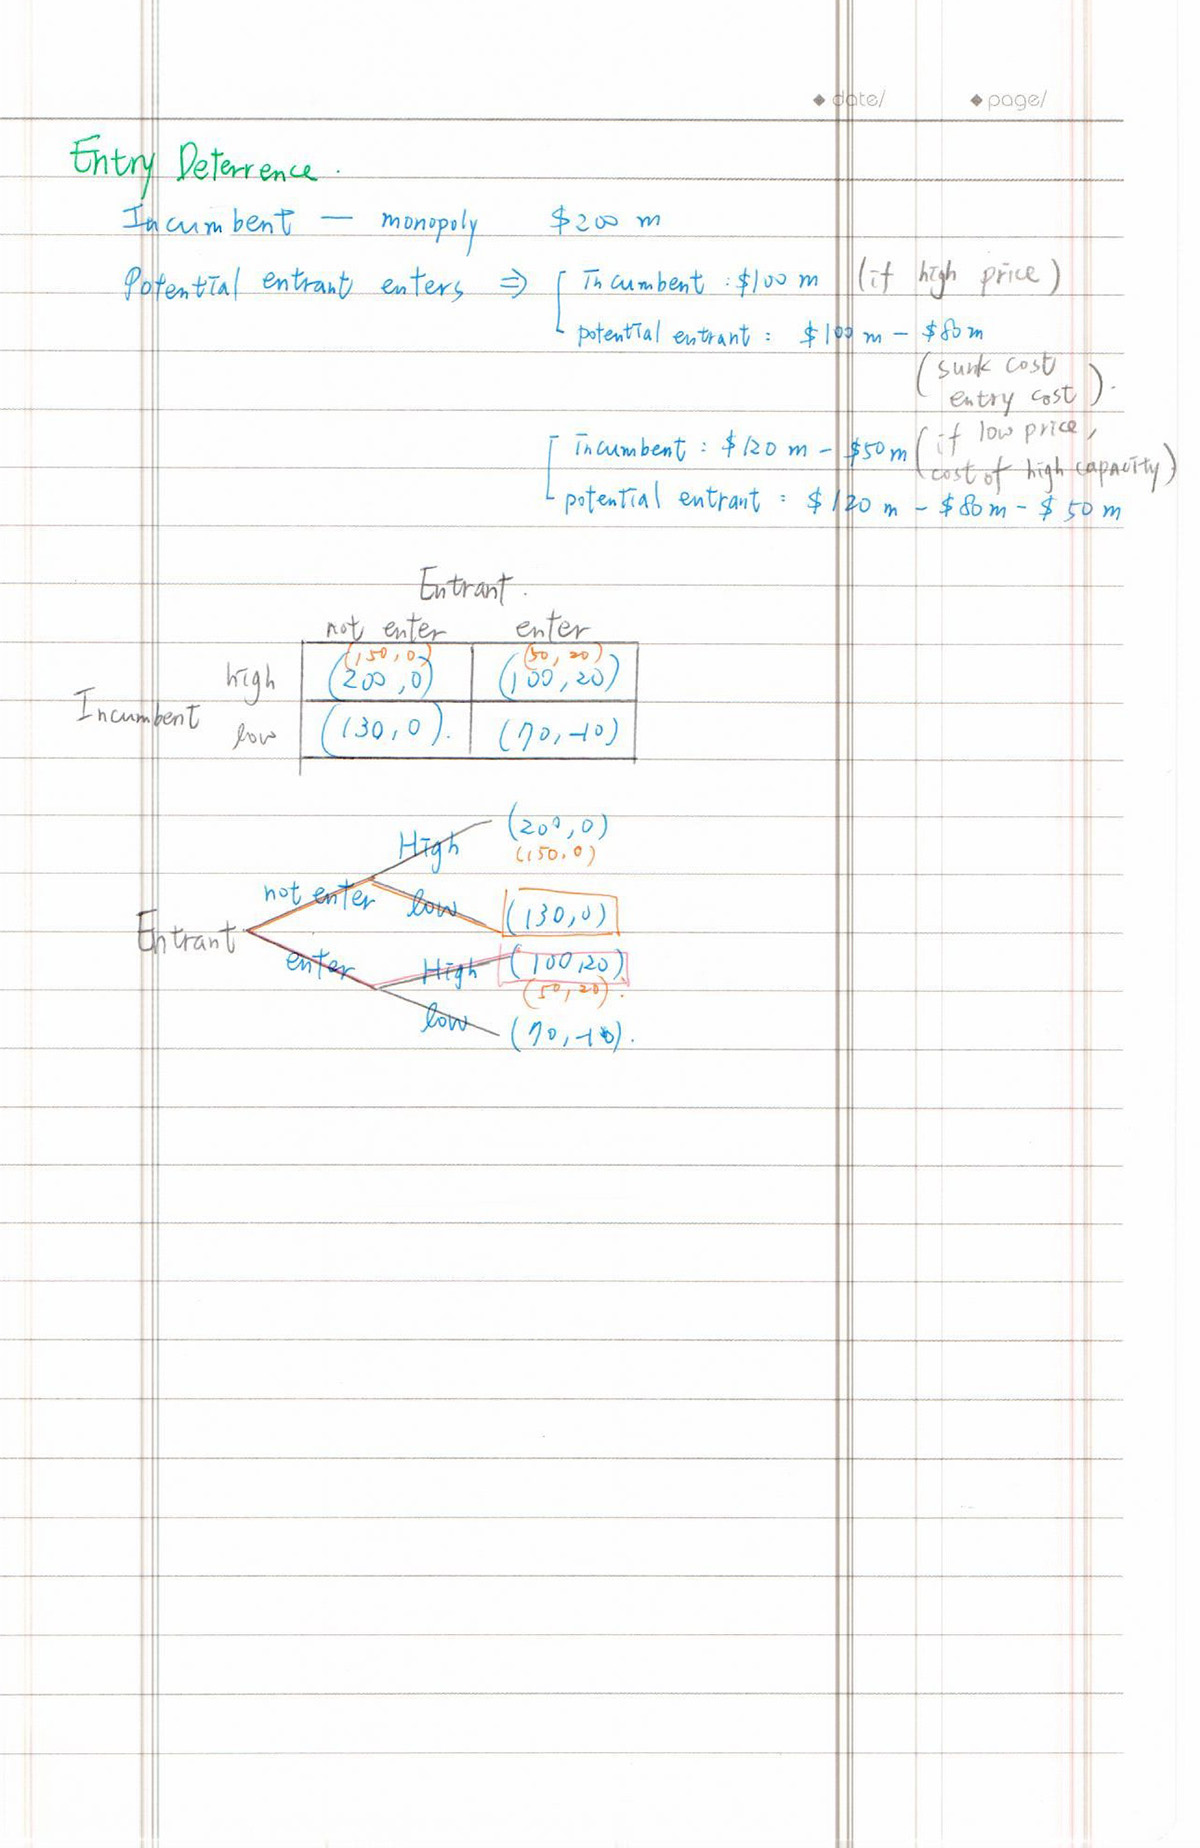 ◆ date/ ◆ page/
Entry Deterrence.
Incumbent — monopoly $200 m
Potential entrant enters ⇒ [ Incumbent : $100 m (if high price)
potential entrant : $100 m - $80m
(sunk cost
entry cost).
[ incumbent : $120 m - $50m (if low price,
cost of high capacity)
potential entrant : $120 m - $80m - $50m
Entrant.
not enter enter
(150, 0) (50, 20)
high (200, 0) (100, 20)
Incumbent
low (130, 0). (70, -10)
High (200, 0)
(150, 0)
not enter low (130, 0)
Entrant
enter High (100, 20)
(50, 20).
low (70, -10).